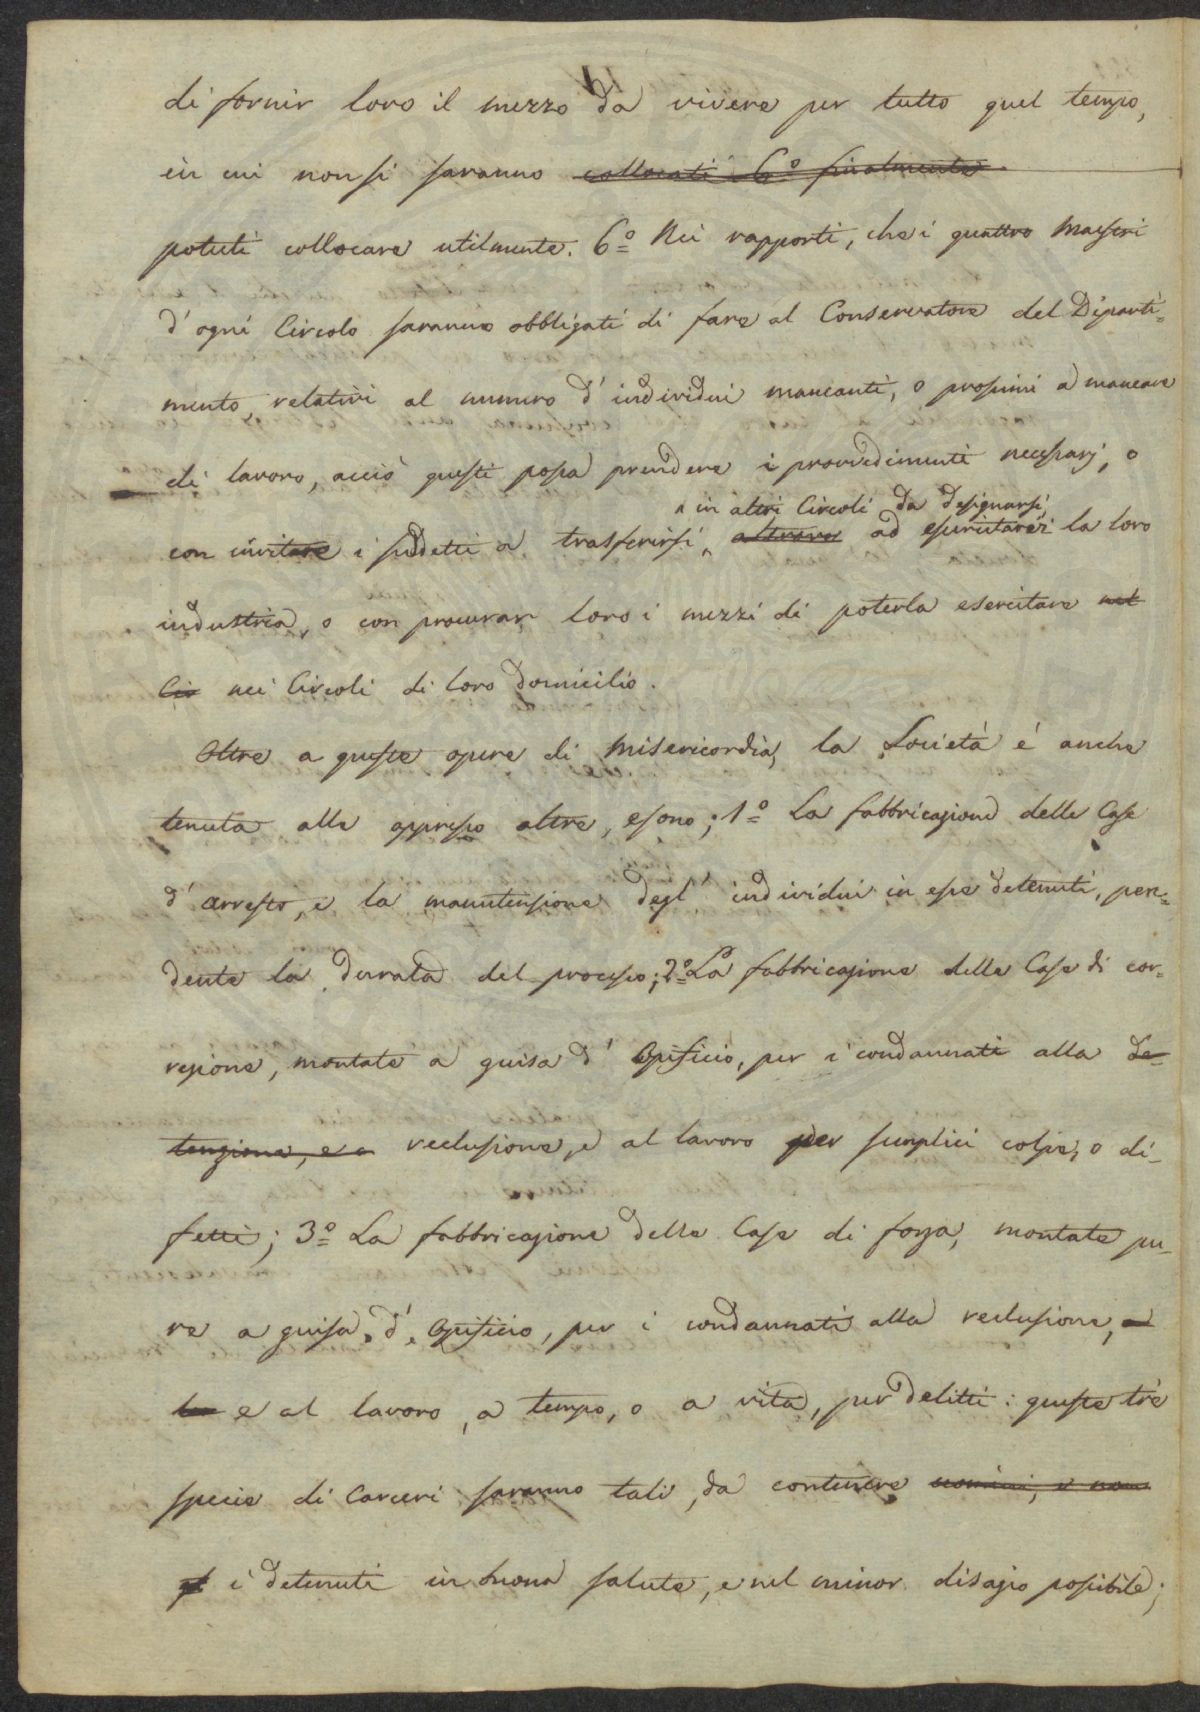 di fornir loro il mezzo da vivere per tutto quel tempo,
in cui non si saranno collocati 6.º finalmente
potuti collocare utilmente. 6.º Nei rapporti, che i quattro Maestri
d'ogni Circolo saranno obbligati di fare al Conservatore del Diparti=
mento, relativi al numero d'individui mancanti, o prossimi a mancare
di lavoro, acciò questi possa prendere i provvedimenti necessarj, o
in altri Circoli da designarsi,
con invitare i suddetti a trasferirsi altrove ad esercitarvi la loro
industria, o con procurar loro i mezzi di poterla esercitare nel
Cir nei Circoli di loro domicilio.
Oltre a queste opere di Misericordia, la Società é anche
tenuta alle appresso altre, e sono; 1.º La fabbricazione delle Case
d'arresto, e la manutensione degl'individui in esse detenuti, pen=
dente la durata del processo; 2.º La fabbricazione delle Case di cor=
rezione, montate a guisa d'Opificio, per i condannati alla de=
tenzione, e a reclusione, e al lavoro per semplici colpe, o di=
fetti; 3.º La fabbricazione delle Case di forza, montate pu=
re a guisa d'Opificio, per i condannati alla reclusione,
e al lavoro, a tempo, o a vita, per delitti: queste tré
specie di Carceri saranno tali, da contenere uomini, e non
i detenuti in buona salute, e nel minor disagio possibile;